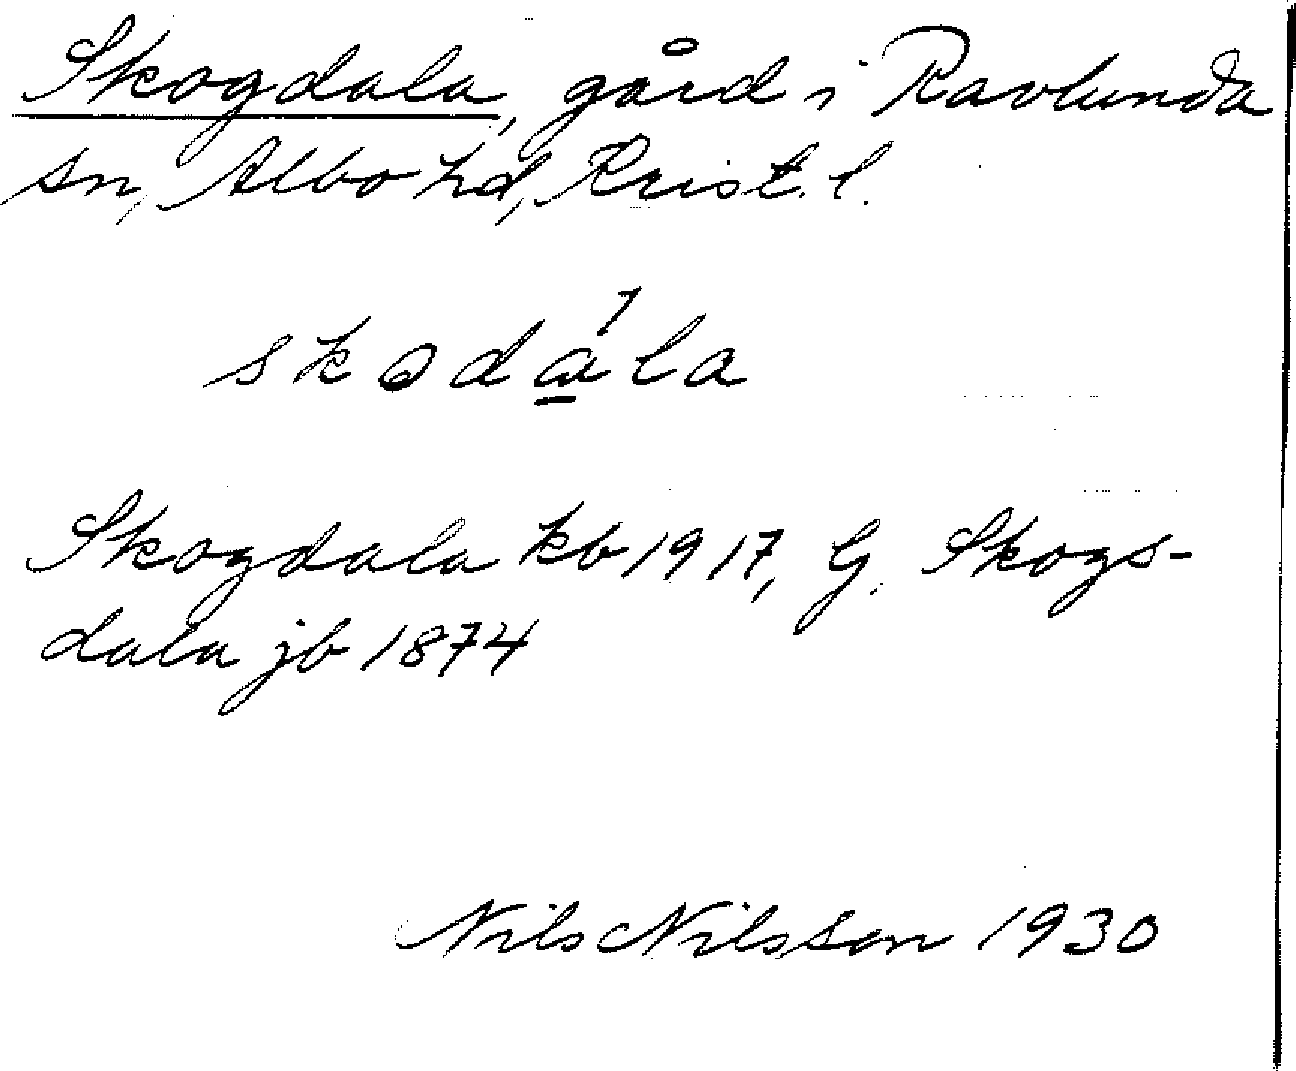 Skogdala, gård i Ravlunda
sn, Albo hd, Krist. l.
skodala
Skogdala kb 1917, G. Skogs-
dala jb 1874
Nils Nilsson 1930